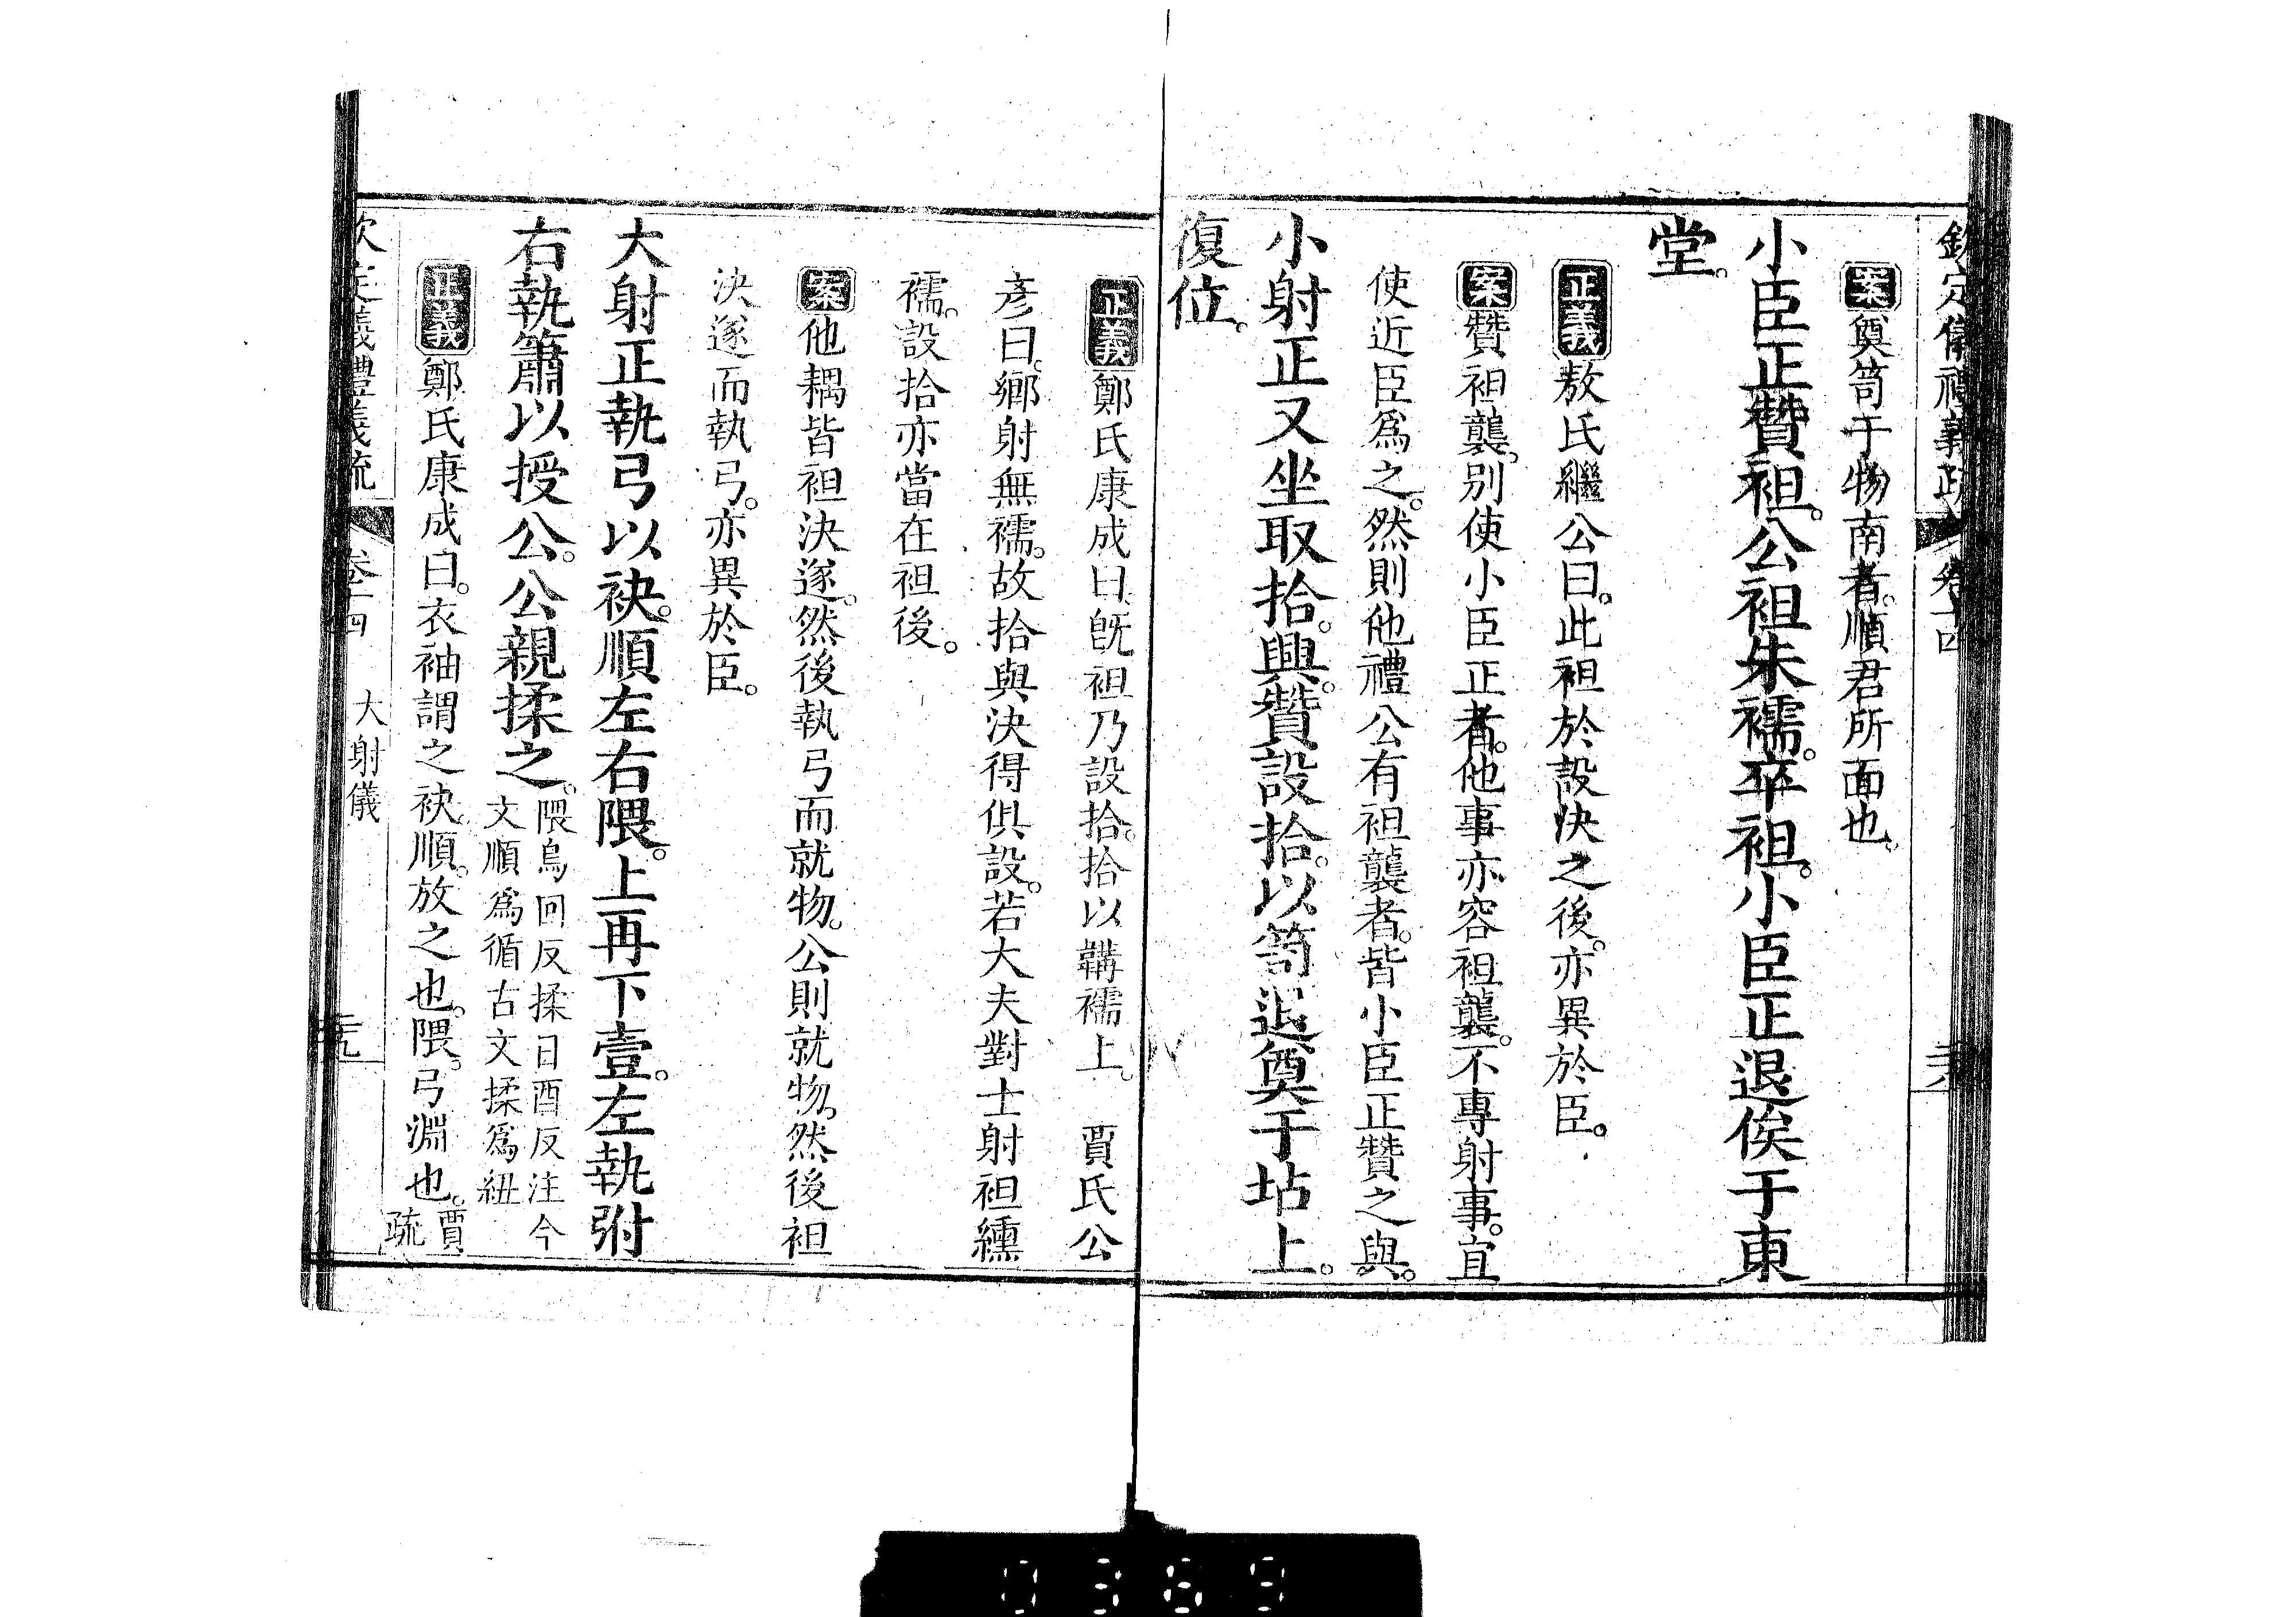 欽定儀禮義疏 卷十四
案奠笥于物南者。順君所面也。
小臣正贊袒。公袒朱襦。卒袒。小臣正退俟于東
堂。
正義敖氏繼公曰。此袒於設決之後。亦異於臣。
案贊袒襲。别使小臣正者。他事亦容袒襲。不專射事。宜
使近臣爲之。然則他禮公有袒襲者。皆小臣正贊之與。
小射正又坐取拾。興。贊設拾。以笥退奠于坫上。
復位。
正義鄭氏康成曰旣袒乃設拾。拾以韝襦上。 賈氏公
彥曰。鄉射無襦。故拾與決得俱設。若大夫對士射袒纁
襦。設拾亦當在袒後。
案他耦皆袒決遂。然後執弓而就物。公則就物。然後袒
決遂而執弓。亦異於臣。
大射正執弓以袂。順左右隈。上再下壹。左執弣
右執簫以授公。公親揉之。隈烏回反揉日酉反注今
文順爲循古文揉爲紐
正義鄭氏康成曰。衣袖謂之袂順。放之也。隈。弓淵也。賈
疏
欽定儀禮義疏 卷十四 大射儀 二九
0389